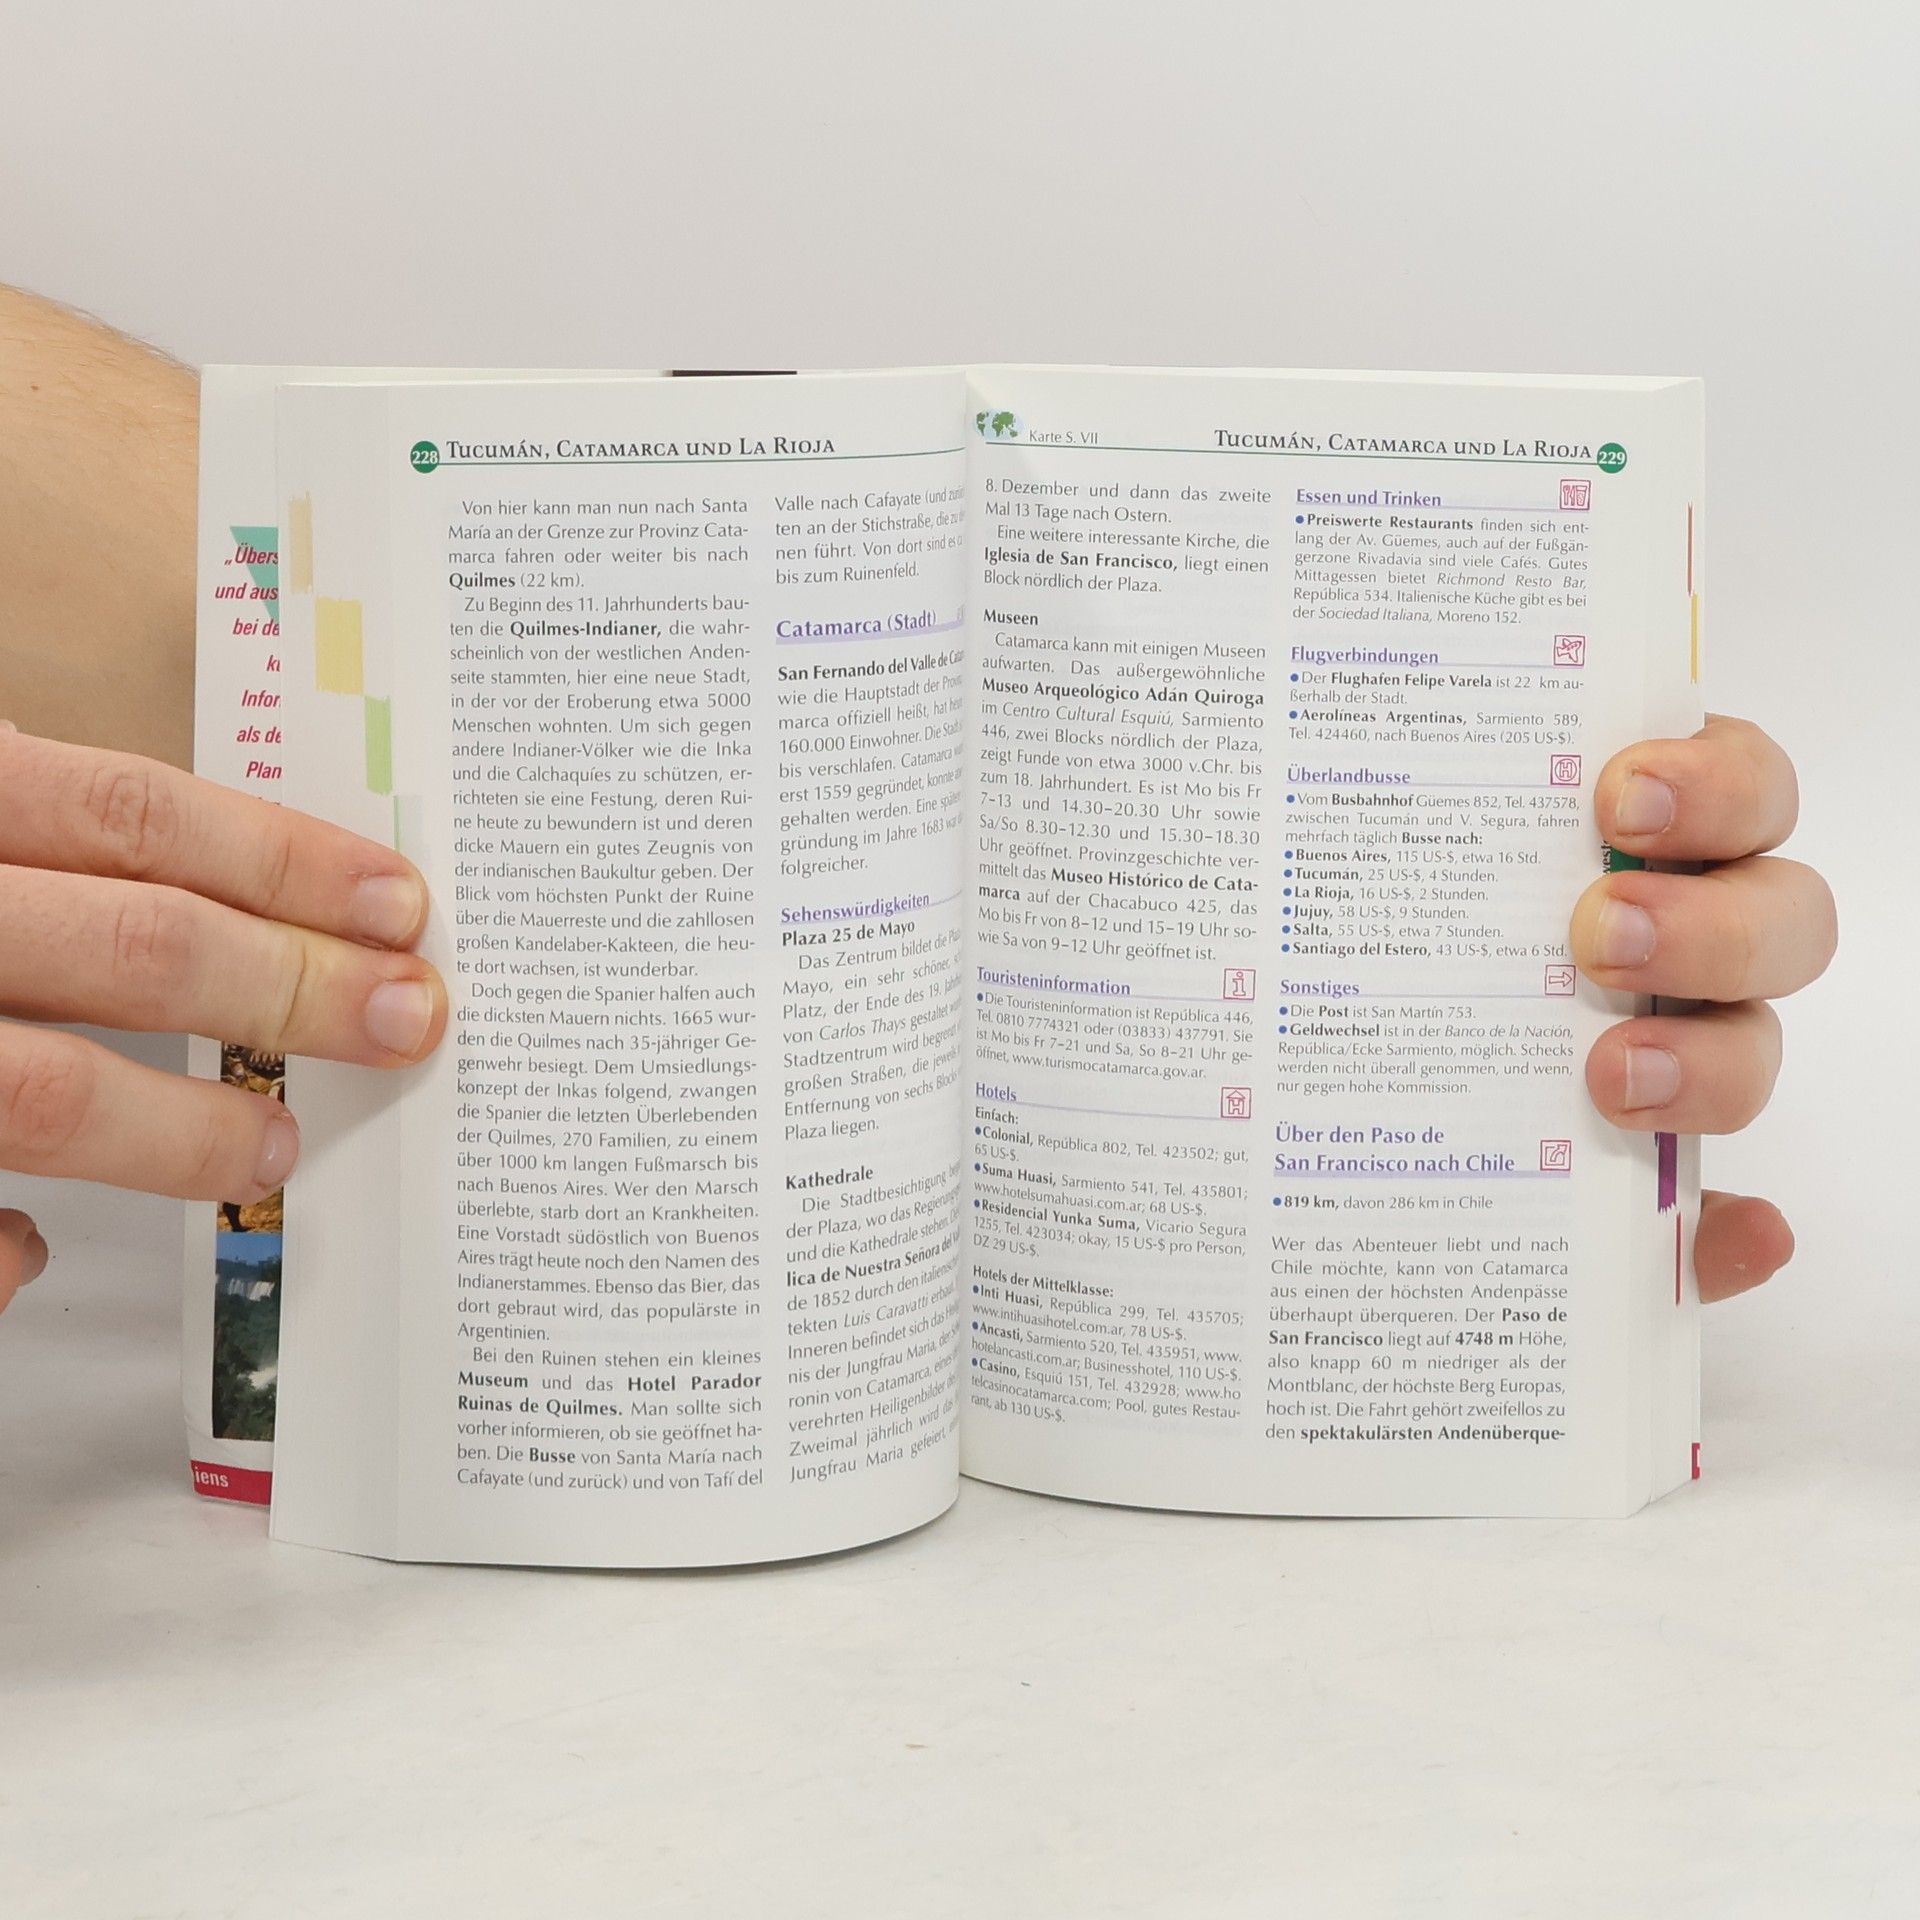 „Übers
und aus
bei de
Infor
als de
Plan
iens
228 TUCUMÁN, CATAMARCA UND LA RIOJA
Von hier kann man nun nach Santa
María an der Grenze zur Provinz Cata-
marca fahren oder weiter bis nach
Quilmes (22 km).
Zu Beginn des 11. Jahrhunderts bau-
ten die Quilmes-Indianer, die wahr-
scheinlich von der westlichen Anden-
seite stammten, hier eine neue Stadt,
in der vor der Eroberung etwa 5000
Menschen wohnten. Um sich gegen
andere Indianer-Völker wie die Inka
und die Calchaquíes zu schützen, er-
richteten sie eine Festung, deren Rui-
ne heute zu bewundern ist und deren
dicke Mauern ein gutes Zeugnis von
der indianischen Baukultur geben. Der
Blick vom höchsten Punkt der Ruine
über die Mauerreste und die zahllosen
großen Kandelaber-Kakteen, die heu-
te dort wachsen, ist wunderbar.
Doch gegen die Spanier halfen auch
die dicksten Mauern nichts. 1665 wur-
den die Quilmes nach 35-jähriger Ge-
genwehr besiegt. Dem Umsiedlungs-
konzept der Inkas folgend, zwangen
die Spanier die letzten Überlebenden
der Quilmes, 270 Familien, zu einem
über 1000 km langen Fußmarsch bis
nach Buenos Aires. Wer den Marsch
überlebte, starb dort an Krankheiten.
Eine Vorstadt südöstlich von Buenos
Aires trägt heute noch den Namen des
Indianerstammes. Ebenso das Bier, das
dort gebraut wird, das populärste in
Argentinien.
Bei den Ruinen stehen ein kleines
Museum und das Hotel Parador
Ruinas de Quilmes. Man sollte sich
vorher informieren, ob sie geöffnet ha-
ben. Die Busse von Santa María nach
Cafayate (und zurück) und von Tafí del
Valle nach Cafayate (und
ten an der Stichstraße, die zu
nen führt. Von dort sind es
bis zum Ruinenfeld.
Catamarca (Stadt)
San Fernando del Valle de
wie die Hauptstadt der
marca offiziell heißt, hat
160.000 Einwohner. Die
bis verschlafen. Catamarca
erst 1559 gegründet, konnte
gehalten werden. Eine
gründung im Jahre 1683 war
folgreicher.
Sehenswürdigkeiten
Plaza 25 de Mayo
Das Zentrum bildet die
Mayo, ein sehr schöner,
Platz, der Ende des 19.
von Carlos Thays gestaltet
Stadtzentrum wird begrenzt
großen Straßen, die jeweils
Entfernung von sechs
Plaza liegen.
Kathedrale
Die Stadtbesichtigung
der Plaza, wo das
und die Kathedrale stehen.
lica de Nuestra Señora del
de 1852 durch den
tekten Luis Caravatti
Inneren befindet sich das
nis der Jungfrau Maria, der
ronin von Catamarca, eines
verehrten Heiligenbilder
Zweimal jährlich wird das
Jungfrau Maria gefeiert,
Karte S. VII TUCUMÁN, CATAMARCA UND LA RIOJA 229
8. Dezember und dann das zweite
Mal 13 Tage nach Ostern.
Eine weitere interessante Kirche, die
Iglesia de San Francisco, liegt einen
Block nördlich der Plaza.
Museen
Catamarca kann mit einigen Museen
aufwarten. Das außergewöhnliche
Museo Arqueológico Adán Quiroga
im Centro Cultural Esquiú, Sarmiento
446, zwei Blocks nördlich der Plaza,
zeigt Funde von etwa 3000 v.Chr. bis
zum 18. Jahrhundert. Es ist Mo bis Fr
7–13 und 14.30–20.30 Uhr sowie
Sa/So 8.30–12.30 und 15.30–18.30
Uhr geöffnet. Provinzgeschichte ver-
mittelt das Museo Histórico de Cata-
marca auf der Chacabuco 425, das
Mo bis Fr von 8–12 und 15–19 Uhr so-
wie Sa von 9–12 Uhr geöffnet ist.
Touristeninformation
●Die Touristeninformation ist República 446,
Tel. 0810 7774321 oder (03833) 437791. Sie
ist Mo bis Fr 7–21 und Sa, So 8–21 Uhr ge-
öffnet, www.turismocatamarca.gov.ar.
Hotels
Einfach:
●Colonial, República 802, Tel. 423502; gut,
65 US-$.
●Suma Huasi, Sarmiento 541, Tel. 435801;
www.hotelsumahuasi.com.ar; 68 US-$.
●Residencial Yunka Suma, Vicario Segura
1255, Tel. 423034; okay, 15 US-$ pro Person,
DZ 29 US-$.
Hotels der Mittelklasse:
●Inti Huasi, República 299, Tel. 435705;
www.intihuasihotel.com.ar, 78 US-$.
●Ancasti, Sarmiento 520, Tel. 435951, www.
hotelancasti.com.ar; Businesshotel, 110 US-$.
●Casino, Esquiú 151, Tel. 432928; www.ho
telcasinocatamarca.com; Pool, gutes Restau-
rant, ab 130 US-$.
Essen und Trinken
●Preiswerte Restaurants finden sich ent-
lang der Av. Güemes, auch auf der Fußgän-
gerzone Rivadavia sind viele Cafés. Gutes
Mittagessen bietet Richmond Resto Bar,
República 534. Italienische Küche gibt es bei
der Sociedad Italiana, Moreno 152.
Flugverbindungen
●Der Flughafen Felipe Varela ist 22 km au-
ßerhalb der Stadt.
●Aerolíneas Argentinas, Sarmiento 589,
Tel. 424460, nach Buenos Aires (205 US-$).
Überlandbusse
●Vom Busbahnhof Güemes 852, Tel. 437578,
zwischen Tucumán und V. Segura, fahren
mehrfach täglich Busse nach:
●Buenos Aires, 115 US-$, etwa 16 Std.
●Tucumán, 25 US-$, 4 Stunden.
●La Rioja, 16 US-$, 2 Stunden.
●Jujuy, 58 US-$, 9 Stunden.
●Salta, 55 US-$, etwa 7 Stunden.
●Santiago del Estero, 43 US-$, etwa 6 Std.
Sonstiges
●Die Post ist San Martín 753.
●Geldwechsel ist in der Banco de la Nación,
República/Ecke Sarmiento, möglich. Schecks
werden nicht überall genommen, und wenn,
nur gegen hohe Kommission.
Über den Paso de
San Francisco nach Chile
●819 km, davon 286 km in Chile
Wer das Abenteuer liebt und nach
Chile möchte, kann von Catamarca
aus einen der höchsten Andenpässe
überhaupt überqueren. Der Paso de
San Francisco liegt auf 4748 m Höhe,
also knapp 60 m niedriger als der
Montblanc, der höchste Berg Europas,
hoch ist. Die Fahrt gehört zweifellos zu
den spektakulärsten Andenüberque-